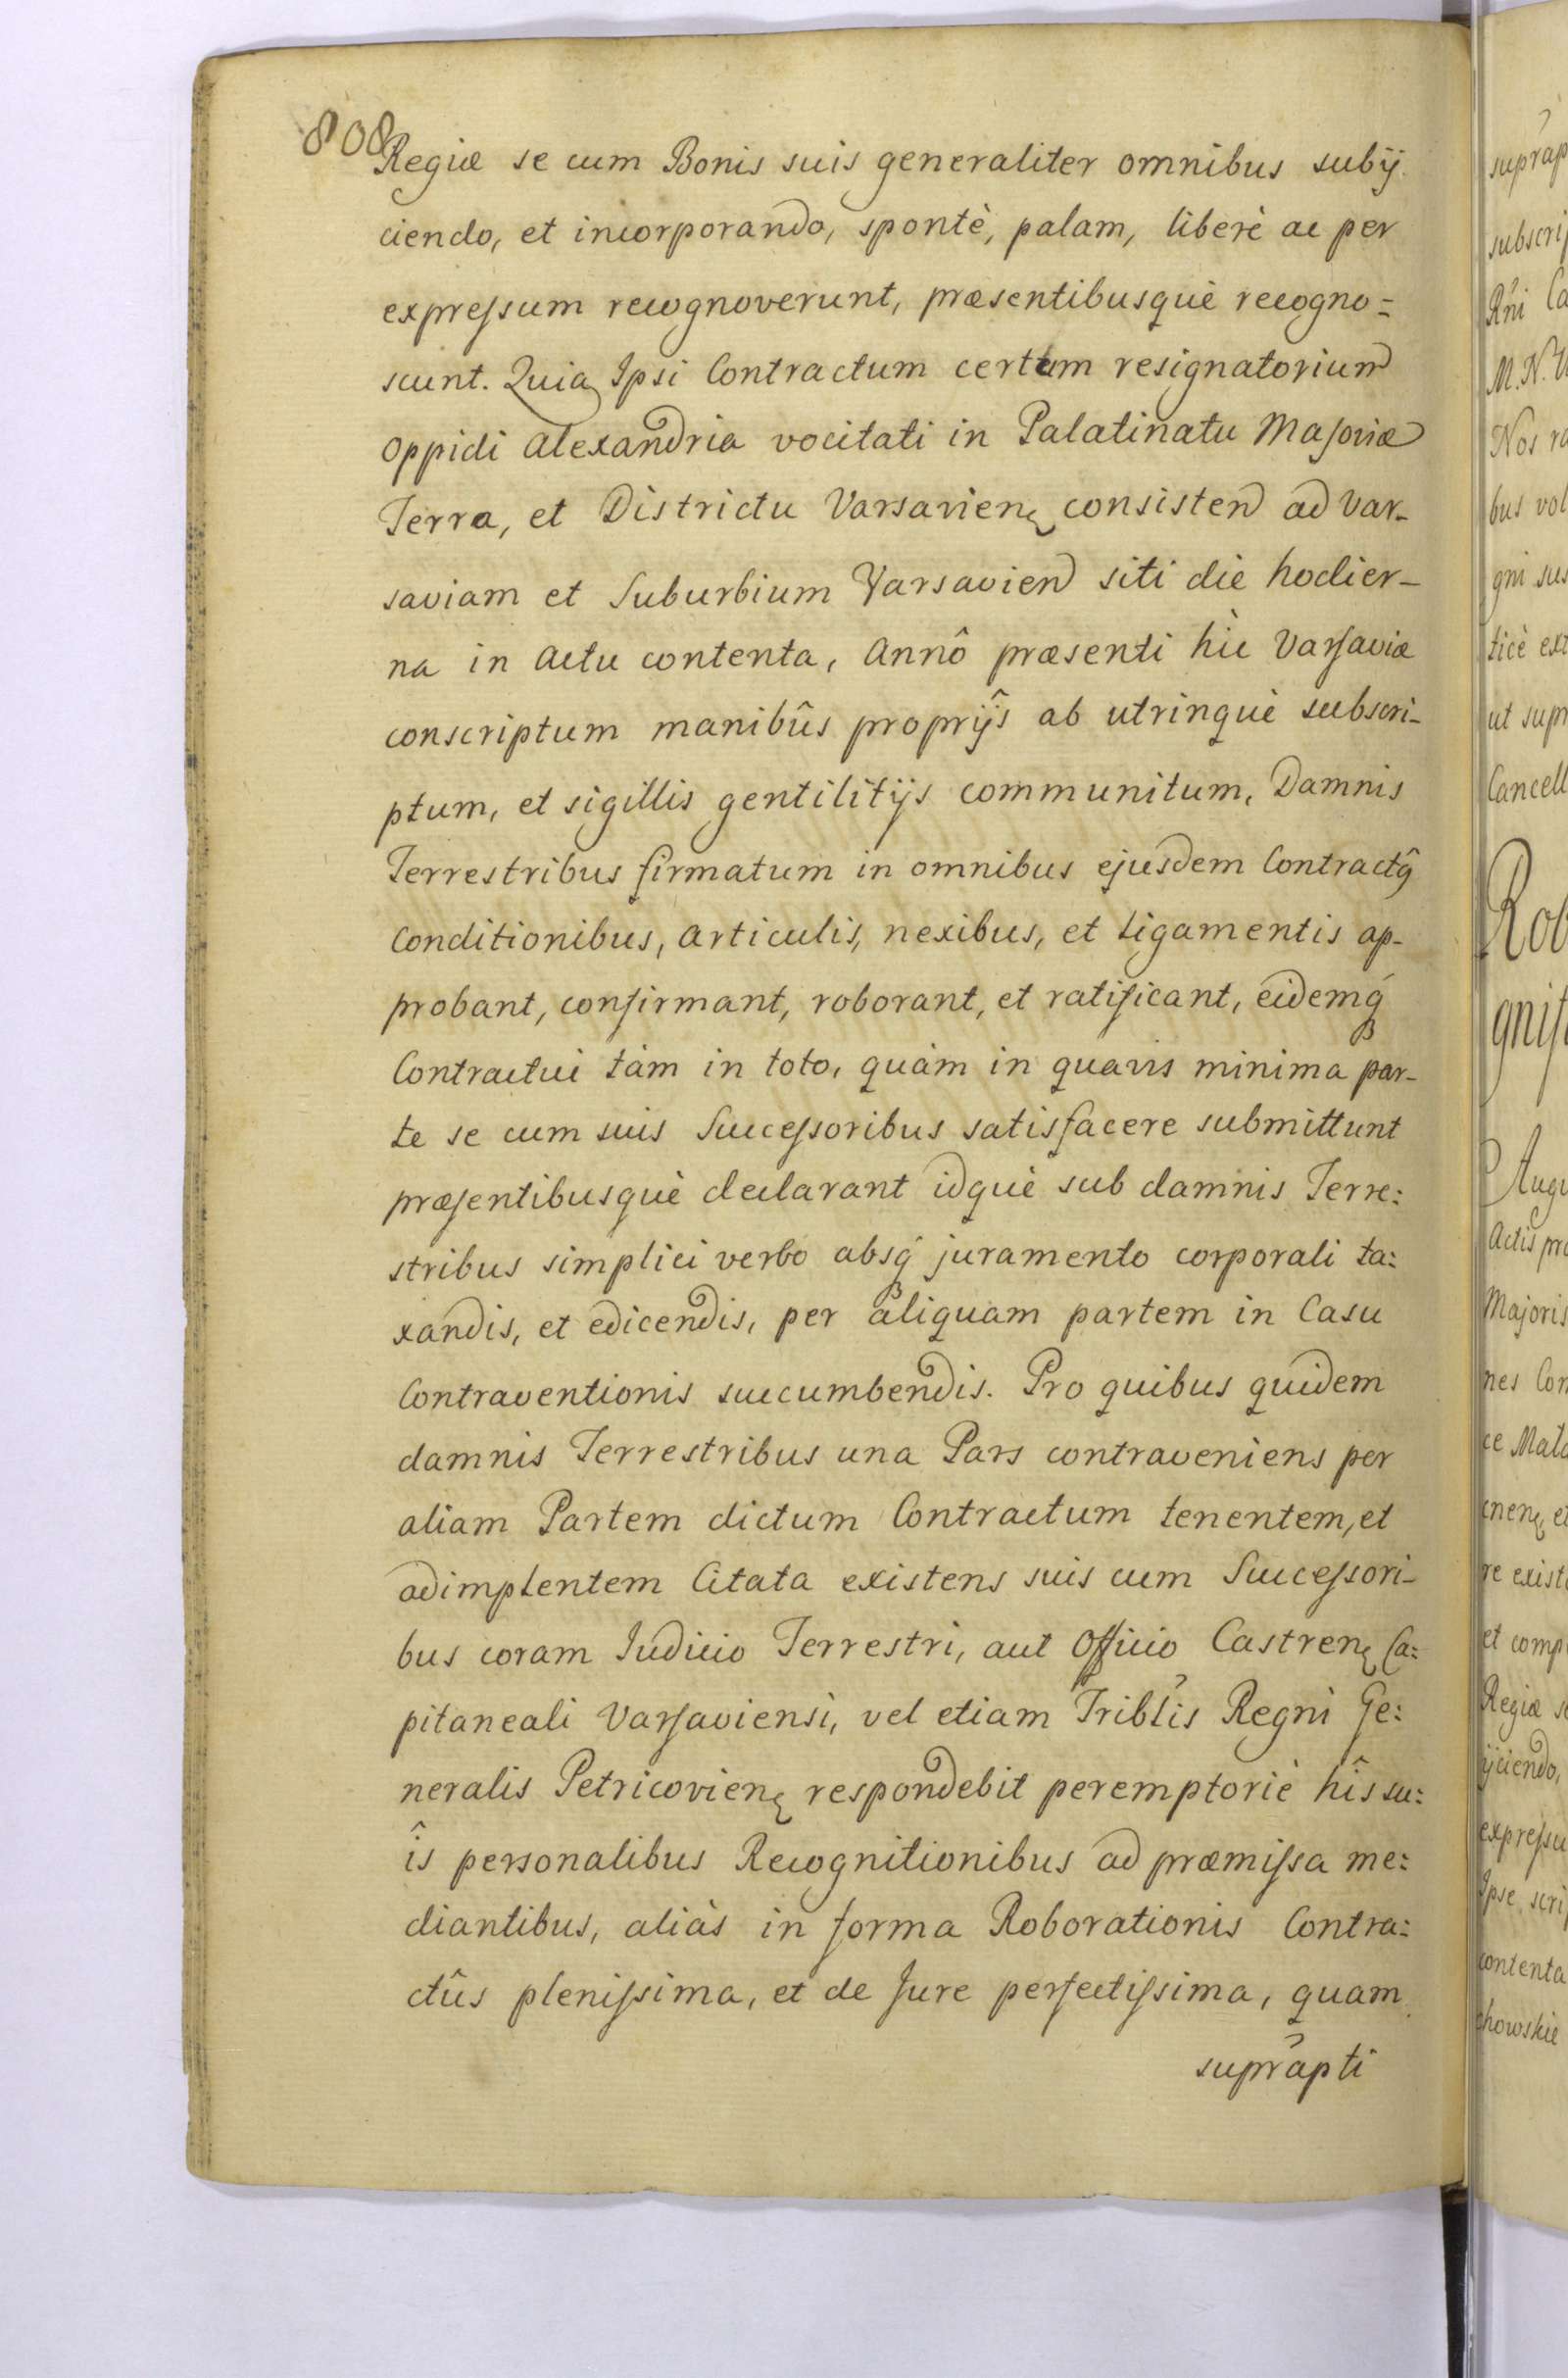 808
Regiæ se cum Bonis suis generaliter omnibus subij
ciendo, et incorporando, spontè, palam, liberè ac per
expressum recognoverunt, præsentibusquè recogno=
scunt. Quia Ipsi Contractum certum resignatorium
Oppidi Alexandria vocitati in Palatinatu Masoviæ
Terra, et Districtu Varsavien consisten ad Var-
saviam et Suburbium Varsavien siti die hodier-
na in Actu contenta, Annô præsenti hìc Varsaviæ
conscriptum manibûs proprijs ab utrinquè subscri-
ptum, et sigillis gentilitijs communitum, Damnis
Terrestribus firmatum in omnibus ejusdem Contractq̂
Conditionibus, Articulis, nexibus, et Ligamentis ap-
probant, confirmant, roborant, et ratificant, eidemq́
Contractui tàm in toto, quàm in quavis minima par-
te se cum suis Successoribus satisfacere submittunt
præsentibusquè declarant idquè sub damnis Terre:
stribus simplici verbo absq́ juramento corporali ta:
xandis, et edicendis, per aliquam partem in Casu
Contraventionis succumbendis. Pro quibus quidem
damnis Terrestribus una Pars contraveniens per
aliam Partem dictum Contractum tenentem, et
adimplentem Citata existens suis cum Successori-
bus coram Iudicio Terrestri, aut Officio Castren Ca:
pitaneali Varsaviensi, vel etiam Triblis Regni Ge:
neralis Petricovien respondebit peremptoriè hîs su:
îs personalibus Recognitionibus ad præmissa me:
diantibus, aliàs in forma Roborationis Contra:
ctûs plenissima, et de Jure perfectissima, quam
suprapti
suprap
subscri
Rni Ca
M. N.
Nos ra
bus vol
gni sus
ticè ext
ut supr
Cancell
Rob
gnif
Augu
Actis pro
Majoris
nes Con
ce Mala
cnen et
re exist
et comp
Regiæ se
ijciendo,
expressu
Ipse scri
contenta
chowskie